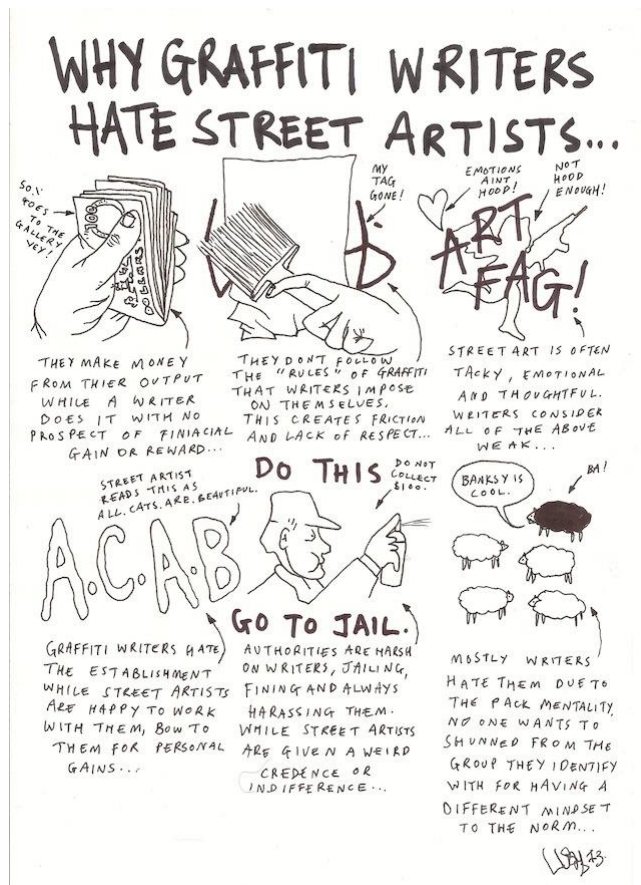 WHY GRAFFITI WRITERS
HATE STREET ARTISTS...
50%
GOES
TO THE
GALLERY
VEY!
100
DOLLARS
THEY MAKE MONEY
FROM THIER OUTPUT
WHILE A WRITER
DOES IT WITH NO
PROSPECT OF FINIACIAL
GAIN OR REWARD...
MY
TAG
GONE!
THEY DONT FOLLOW
THE "RULES" OF GRAFFITI
THAT WRITERS IMPOSE
ON THEMSELVES.
THIS CREATES FRICTION
AND LACK OF RESPECT...
EMOTIONS
AINT
HOOD!
NOT
HOOD
ENOUGH!
ART
FAG!
STREET ART IS OFTEN
TACKY, EMOTIONAL
AND THOUGHTFUL.
WRITERS CONSIDER
ALL OF THE ABOVE
WEAK...
STREET ARTIST
READS THIS AS
ALL.CATS.ARE.BEAUTIFUL.
A.C.A.B
GRAFFITI WRITERS HATE
THE ESTABLISHMENT
WHILE STREET ARTISTS
ARE HAPPY TO WORK
WITH THEM, BOW TO
THEM FOR PERSONAL
GAINS...
DO THIS
DO NOT
COLLECT
$100.
GO TO JAIL.
AUTHORITIES ARE HARSH
ON WRITERS, JAILING,
FINING AND ALWAYS
HARASSING THEM.
WHILE STREET ARTISTS
ARE GIVEN A WEIRD
CREDENCE OR
INDIFFERENCE...
BANKSY IS
COOL.
BA!
MOSTLY WRITERS
HATE THEM DUE TO
THE PACK MENTALITY.
NO ONE WANTS TO
SHUNNED FROM THE
GROUP THEY IDENTIFY
WITH FOR HAVING A
DIFFERENT MINDSET
TO THE NORM...